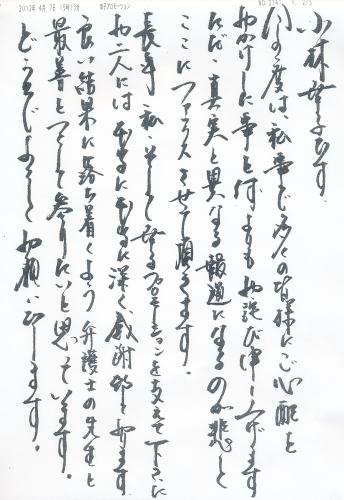 2012年 4月 7日 15時13分 幸子プロモーション NO. 3141 P. 2/3
小林幸子です。
この度は、私事で多くの皆様にご心配を
おかけした事を何よりもお詫び申し上げます
ただ、真実と異なる報道になるのが悲しく
ここにファックスさせて頂きます。
長年、私、そして幸子プロモーションを支えて下さった
お二人には本当に本当に深く、感謝しております
良い結果に落ち着くよう弁護士の先生と
最善をつくして参りたいと思っています。
どうぞよろしくお願いします。